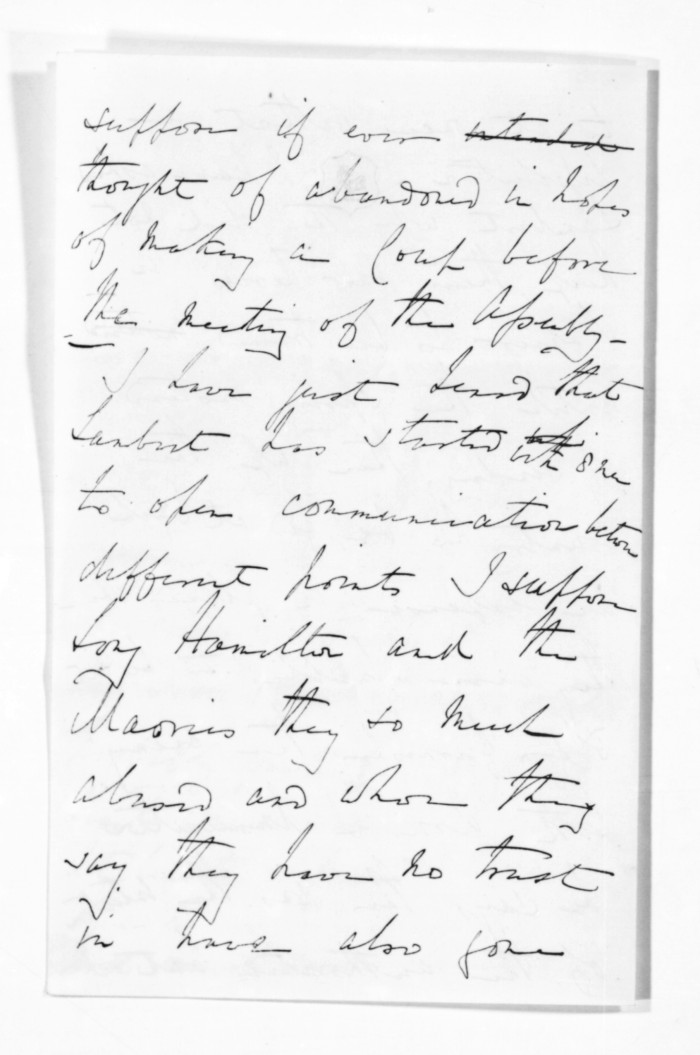 suppose if ever intended
thought of abandoned in hopes
of making a Coup before
the meeting of the Assembly -
I have just heard that
Lambert has started with 8 men
to open communication between
different points I suppose
Long Hamilton and the
Maories they so much
abused and whom they
say they have no trust
in have also gone